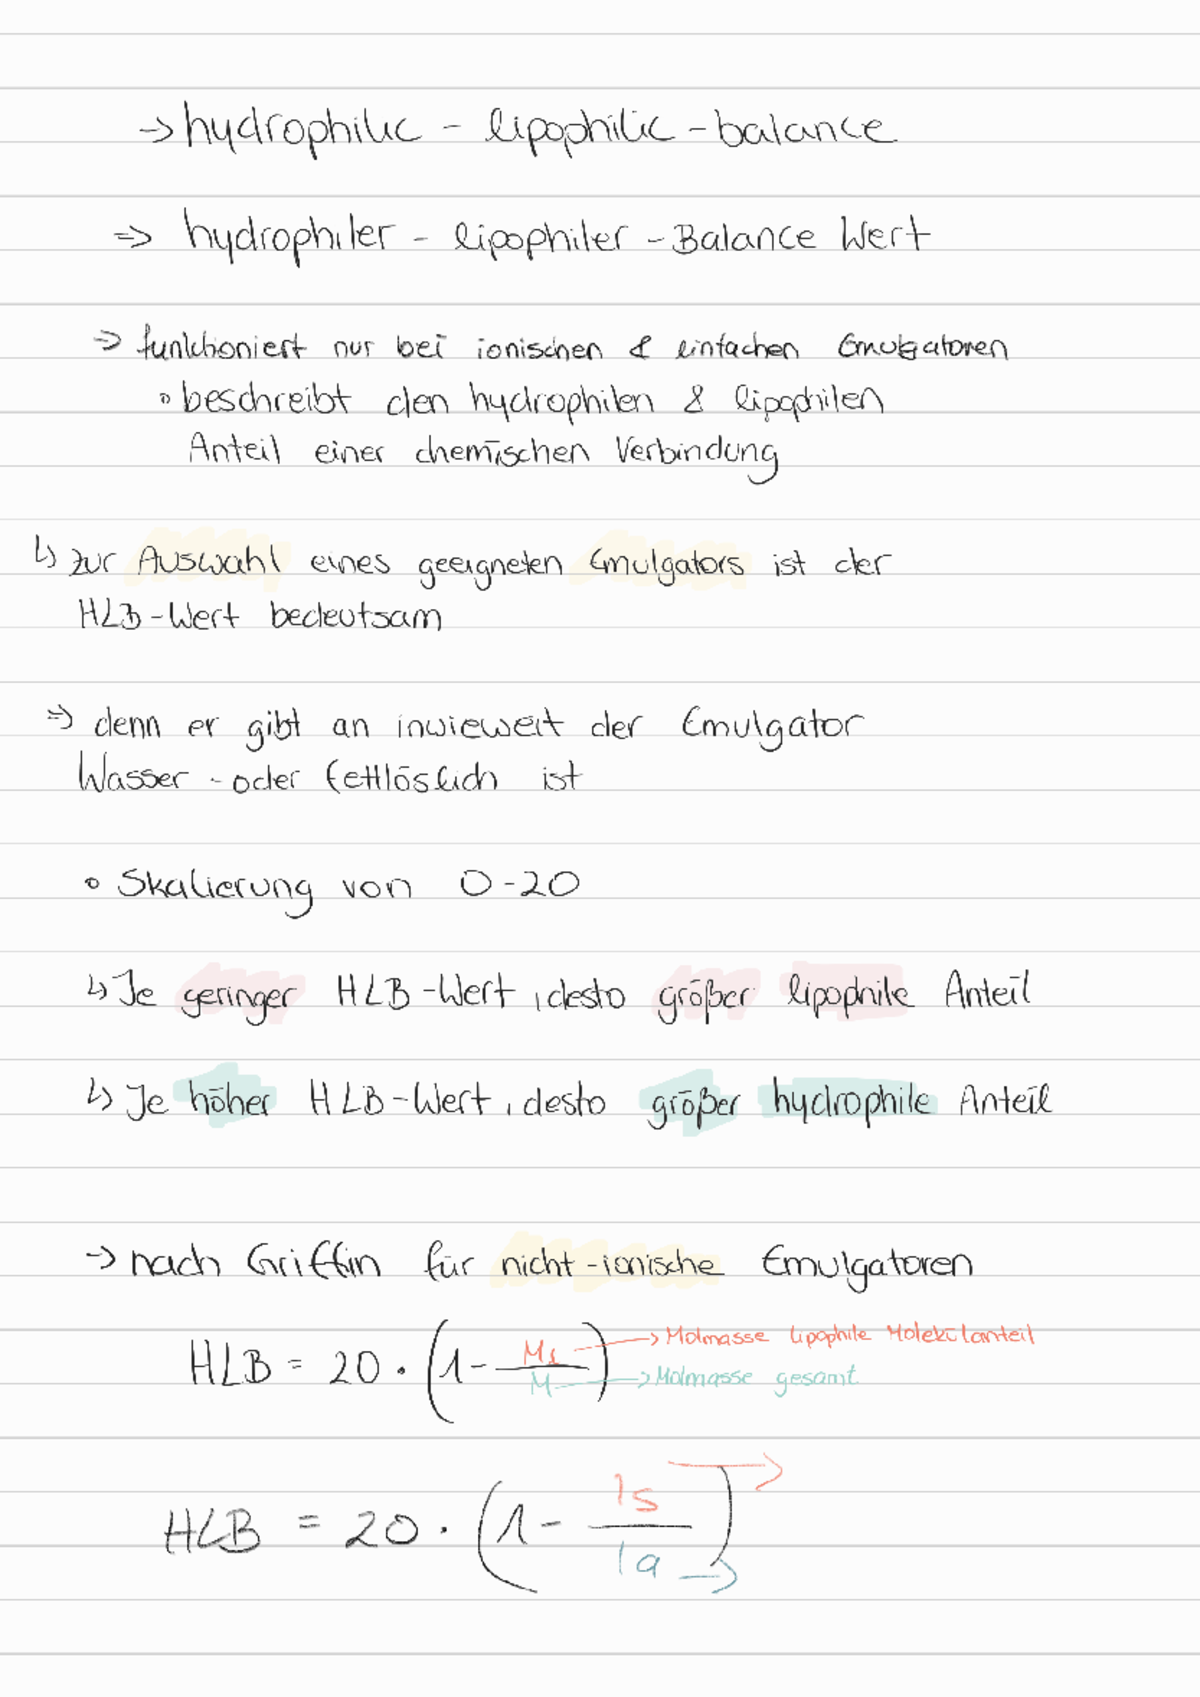 → hydrophilic - lipophilic - balance
⇒ hydrophiler - lipophiler - Balance Wert
⇒ funktioniert nur bei ionischen & einfachen Emulgatoren
° beschreibt den hydrophilen & lipophilen
Anteil einer chemischen Verbindung
↳ zur Auswahl eines geeigneten Emulgators ist der
HLB-Wert bedeutsam
⇒ denn er gibt an inwieweit der Emulgator
Wasser - oder fettlöslich ist
° Skalierung von 0-20
↳ Je geringer HLB-Wert, desto größer lipophile Anteil
↳ Je höher HLB-Wert, desto größer hydrophile Anteil
→ nach Griffin für nicht-ionische Emulgatoren
HLB = 20 · (1 - Ml / M) → Molmasse lipophile Molekülanteil
→ Molmasse gesamt
HLB = 20 · (1 - ls / la)